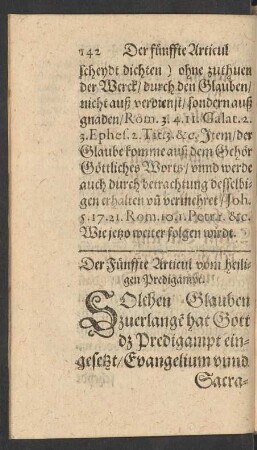 142 Der fünffte Articul
scheydt dichten) ohne zuthuen
der Werck / durch den Glauben /
nicht auß verdienst / sondern auß
gnaden / Rom. 3. 4. 11. Galat. 2.
3. Ephes. 2. Tit. 3. &c. Item / der
Glaube komme auß dem Gehör
Göttliches Worts / vnnd werde
auch durch betrachtung desselbi-
gen erhalten vñ vermehret / Joh.
5. 17. 21. Rom. 10. 1. Petr. 1. &c.
Wie jetzo weiter folgen wirdt.
Der Fünffte Articul vom heili-
gen Predigampt.
SOlchen Glauben
zuerlangẽ hat Gott
dz Predigampt ein-
gesetzt / Evangelium vnnd
Sacra-